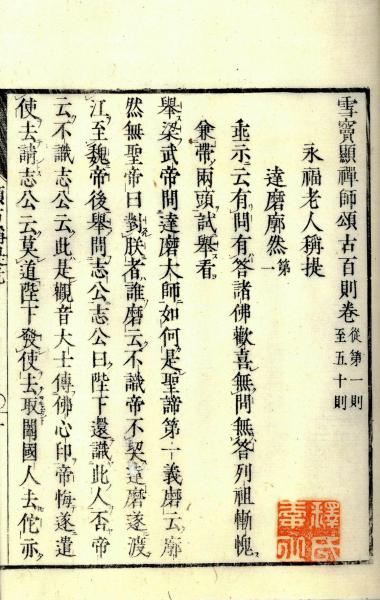 雪竇顯禪師頌古百則卷從第一則至五十則
永福老人稱提
達磨廓然第一
垂示云有問有答諸佛歡喜無問無答列祖慚愧
兼帶兩頭試舉看
舉梁武帝問達磨大師如何是聖諦第一義磨云廓
然無聖帝曰對朕者誰磨云不識帝不契達磨遂渡
江至魏帝後舉問志公志公曰陛下還識此人否帝
云不識志公云此是觀音大士傳佛心印帝悔遂遣
使去請志公云莫道陛下發使去取闔國人去佗亦